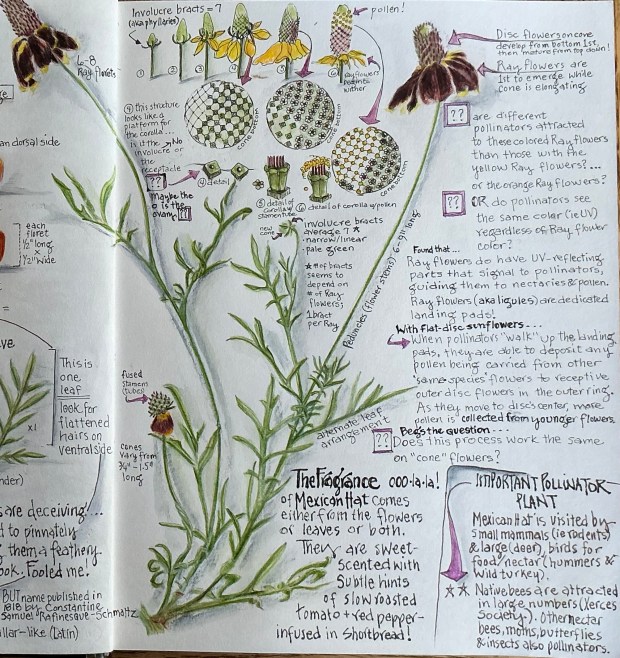 6-8
Ray florets
an dorsal side
each
floret
1/2" long
x
1/2" wide
This is
one
leaf
look for
flattened
hairs on
ventral side
x1
are deceiving!...
d to pinnately
them a feathery
ook. Fooled me!
BUT name published in
1818 by Constantine
Samuel Rafinesque-Schmaltz
llar-like (Latin)
Involucre bracts = 7
(aka phyllaries)
pollen!
① ② ③ ④ ⑤ ⑥
Ray flowers
begin to
wither
④ this structure
looks like a
platform for
the corolla...
is it the
No
involucre or
the
receptacle
??
Maybe the
is the
ovary ??
cone bottom
cone bottom
cone bottom
④ detail
⑤ detail of
corolla w/
stamen tube
⑥ detail of corolla w/pollen
new
cone
Involucre bracts
average 7 ★
narrow/linear
pale green
★ # of bracts
seems to
depend on
# of Ray
flowers;
1 bract
per Ray
Peduncles (flower stems) 6-9" long
fused
stamens
(tubes)
Cones
vary from
3/4" - 1.5"
long
alternate leaf
arrangement
The Fragrance ooo-la-la!
of Mexican Hat comes
either from the flowers
or leaves or both.
They are sweet-
scented with
subtle hints
of slow roasted
tomato + red pepper-
infused in shortbread!
Disc flowers on cone
develop from bottom 1st,
then mature from top down!
Ray flowers are
1st to emerge while
cone is elongating
?? are different
pollinators attracted
to these colored Ray flowers
than those with the
yellow Ray flowers?...
or the orange Ray flowers?
?? OR do pollinators see
the same color (ie UV)
regardless of Ray flower
color?
Found that...
Ray flowers do have UV-reflecting
parts that signal to pollinators,
guiding them to nectaries & pollen.
Ray flowers (aka ligules) are dedicated
landing pads!
With flat-disc sunflowers...
When pollinators "walk" up the landing
pads, they are able to deposit any
pollen being carried from other
'same species' flowers to receptive
outer disc flowers in the outer ring.
As they move to disc's center, more
pollen is collected from younger flowers.
Begs the question...
?? Does this process work the same
on "cone" flowers?
IMPORTANT POLLINATOR
PLANT
Mexican Hat is visited by
small mammals (ie rodents)
& large (deer), birds for
food/nectar (hummers &
wild turkey).
★★ Native bees are attracted
in large numbers (Xerces
Society). Other nectar
bees, moths, butterflies
& insects also pollinators.